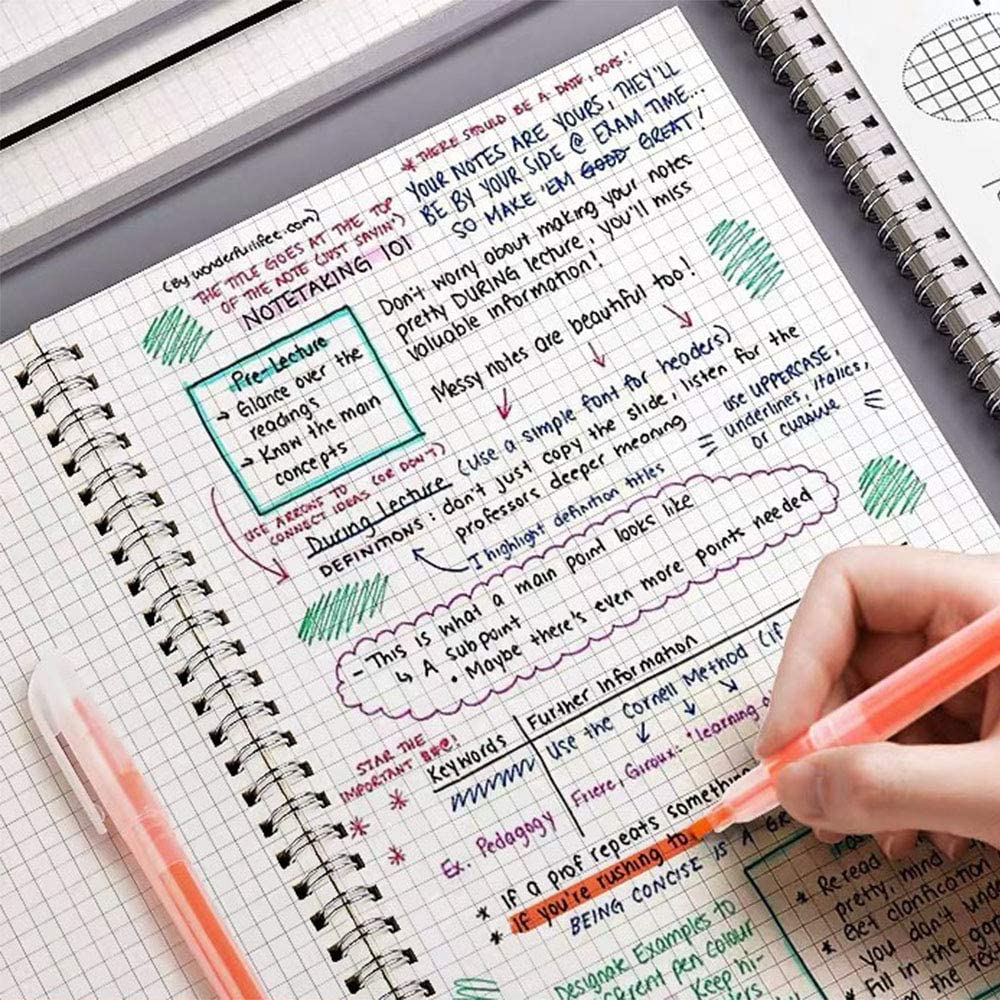 * THERE SHOULD BE A DATE, OOPS!
YOUR NOTES ARE YOURS, THEY'LL
BE BY YOUR SIDE @ EXAM TIME...
SO MAKE 'EM GOOD GREAT!
(By wonderfullifee.com)
THE TITLE GOES AT THE TOP
OF THE NOTE (JUST SAYIN')
NOTETAKING 101
Don't worry about making your notes
pretty DURING lecture, you'll miss
valuable information!
Messy notes are beautiful too!
Pre-Lecture
→ Glance over the
readings
→ Know the main
concepts
USE ARROWS TO
CONNECT IDEAS (OR DON'T)
During Lecture (use a simple font for headers)
DEFINITIONS: don't just copy the slide, listen for the
professors deeper meaning
I highlight definition titles
use UPPERCASE,
underlines, italics,
or cursive
- This is what a main point looks like
↳ A subpoint
• Maybe there's even more points needed
STAR THE
IMPORTANT
Keywords
Further Information
Use the Cornell Method (if
Ex. Pedagogy
Friere, Giroux: "learning
* If a prof repeats something
* If you're rushing to
BEING CONCISE IS A
Designate Examples to
pen colour
Keep hi-
* Re-read
pretty, mind
* Get clarification
you don't
* Fill in the
the